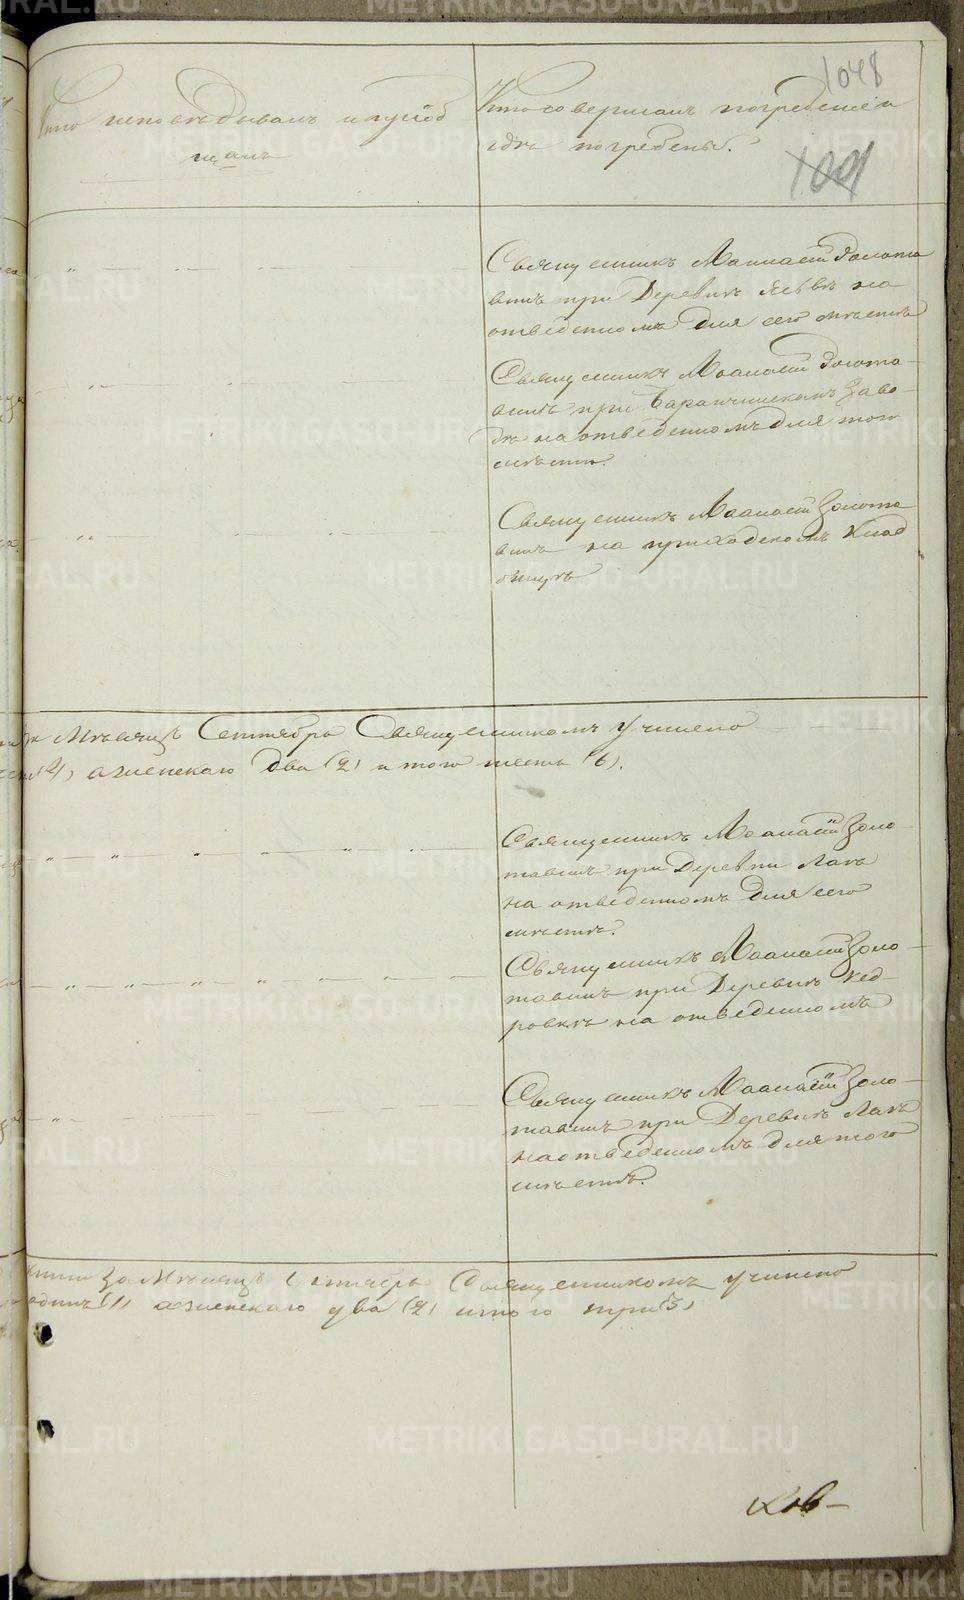 1048
Кто исповѣдывалъ и пріоб
щалъ
Кто совершалъ погребеніе и
гдѣ погребены.
109
Священникъ Золота
винъ при Деревнѣ на
отведенномъ для сего мѣстѣ
Священникъ Золота-
винъ при Баранчинскомъ Заво-
дѣ на отведенномъ для того
мѣстѣ.
Священникъ Золота
винъ на приходскомъ Клад
бищѣ
Мѣсяцъ Сентябрь Священникомъ Учинено
а женскаго два (2) итого шесть (6).
Священникъ Золо-
тавинъ при Деревни Лаѣ
на отведенномъ для сего
мѣстѣ.
Священникъ Золо-
тавинъ при Деревнѣ Кед
ровкѣ на отведенномъ
Священникъ Золо-
тавинъ при Деревнѣ Лаѣ
на отведенномъ для того
мѣстѣ.
за Мѣсяцъ Священникомъ учинено
одинъ (1) а женскаго два (2) итого три (3)
METRIKI.GASO-URAL.RU